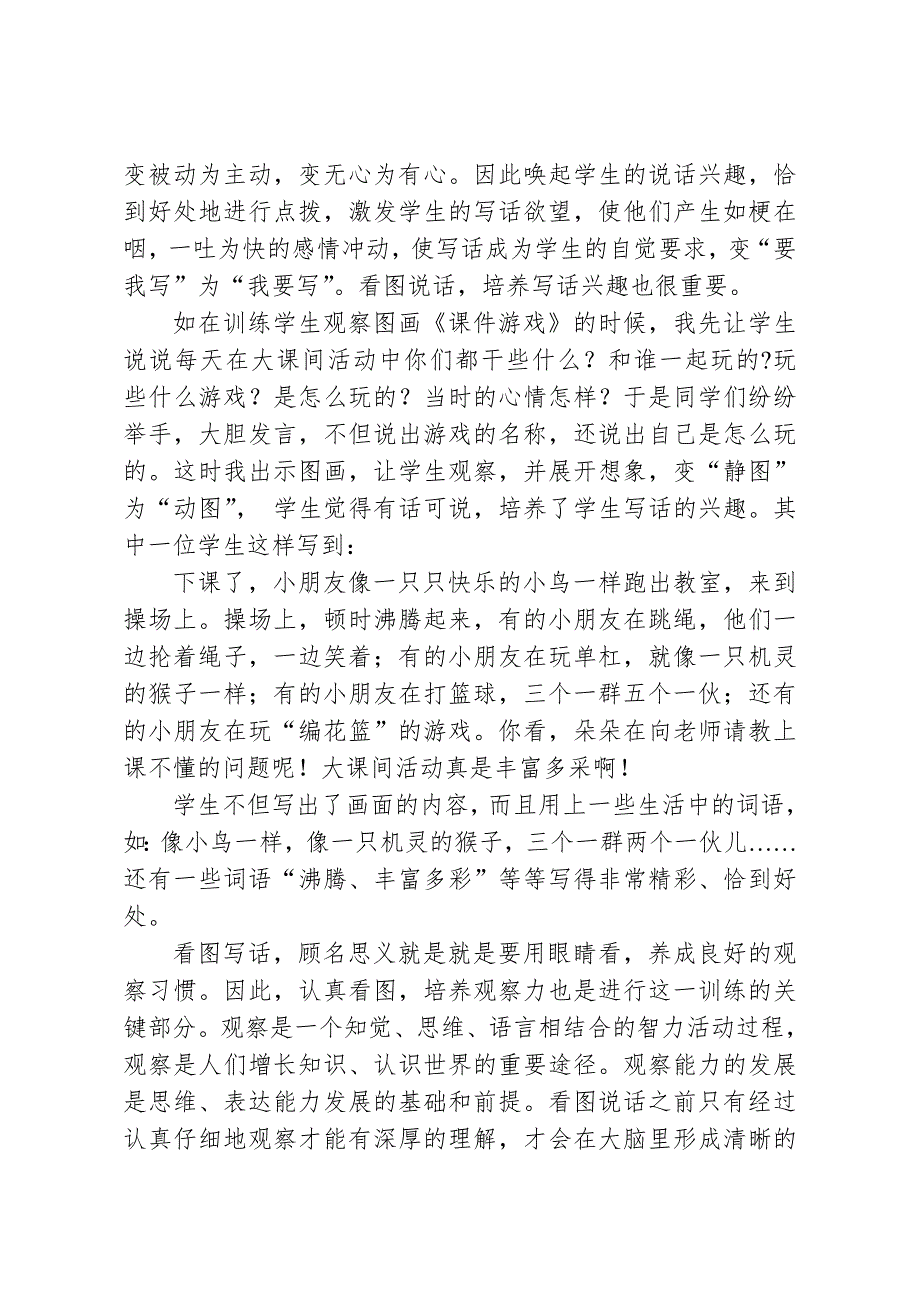 变被动为主动，变无心为有心。因此唤起学生的说话兴趣，恰
到好处地进行点拨，激发学生的写话欲望，使他们产生如梗在
咽，一吐为快的感情冲动，使写话成为学生的自觉要求，变“要
我写”为“我要写”。看图说话，培养写话兴趣也很重要。
如在训练学生观察图画《课件游戏》的时候，我先让学生
说说每天在大课间活动中你们都干些什么？和谁一起玩的?玩
些什么游戏？是怎么玩的？当时的心情怎样？于是同学们纷纷
举手，大胆发言，不但说出游戏的名称，还说出自己是怎么玩
的。这时我出示图画，让学生观察，并展开想象，变“静图”
为“动图”， 学生觉得有话可说，培养了学生写话的兴趣。其
中一位学生这样写到：
下课了，小朋友像一只只快乐的小鸟一样跑出教室，来到
操场上。操场上，顿时沸腾起来，有的小朋友在跳绳，他们一
边抡着绳子，一边笑着；有的小朋友在玩单杠，就像一只机灵
的猴子一样；有的小朋友在打篮球，三个一群五个一伙；还有
的小朋友在玩“编花篮”的游戏。你看，朵朵在向老师请教上
课不懂的问题呢！大课间活动真是丰富多采啊！
学生不但写出了画面的内容，而且用上一些生活中的词语，
如：像小鸟一样，像一只机灵的猴子，三个一群两个一伙儿……
还有一些词语“沸腾、丰富多彩”等等写得非常精彩、恰到好
处。
看图写话，顾名思义就是就是要用眼睛看，养成良好的观
察习惯。因此，认真看图，培养观察力也是进行这一训练的关
键部分。观察是一个知觉、思维、语言相结合的智力活动过程，
观察是人们增长知识、认识世界的重要途径。观察能力的发展
是思维、表达能力发展的基础和前提。看图说话之前只有经过
认真仔细地观察才能有深厚的理解，才会在大脑里形成清晰的